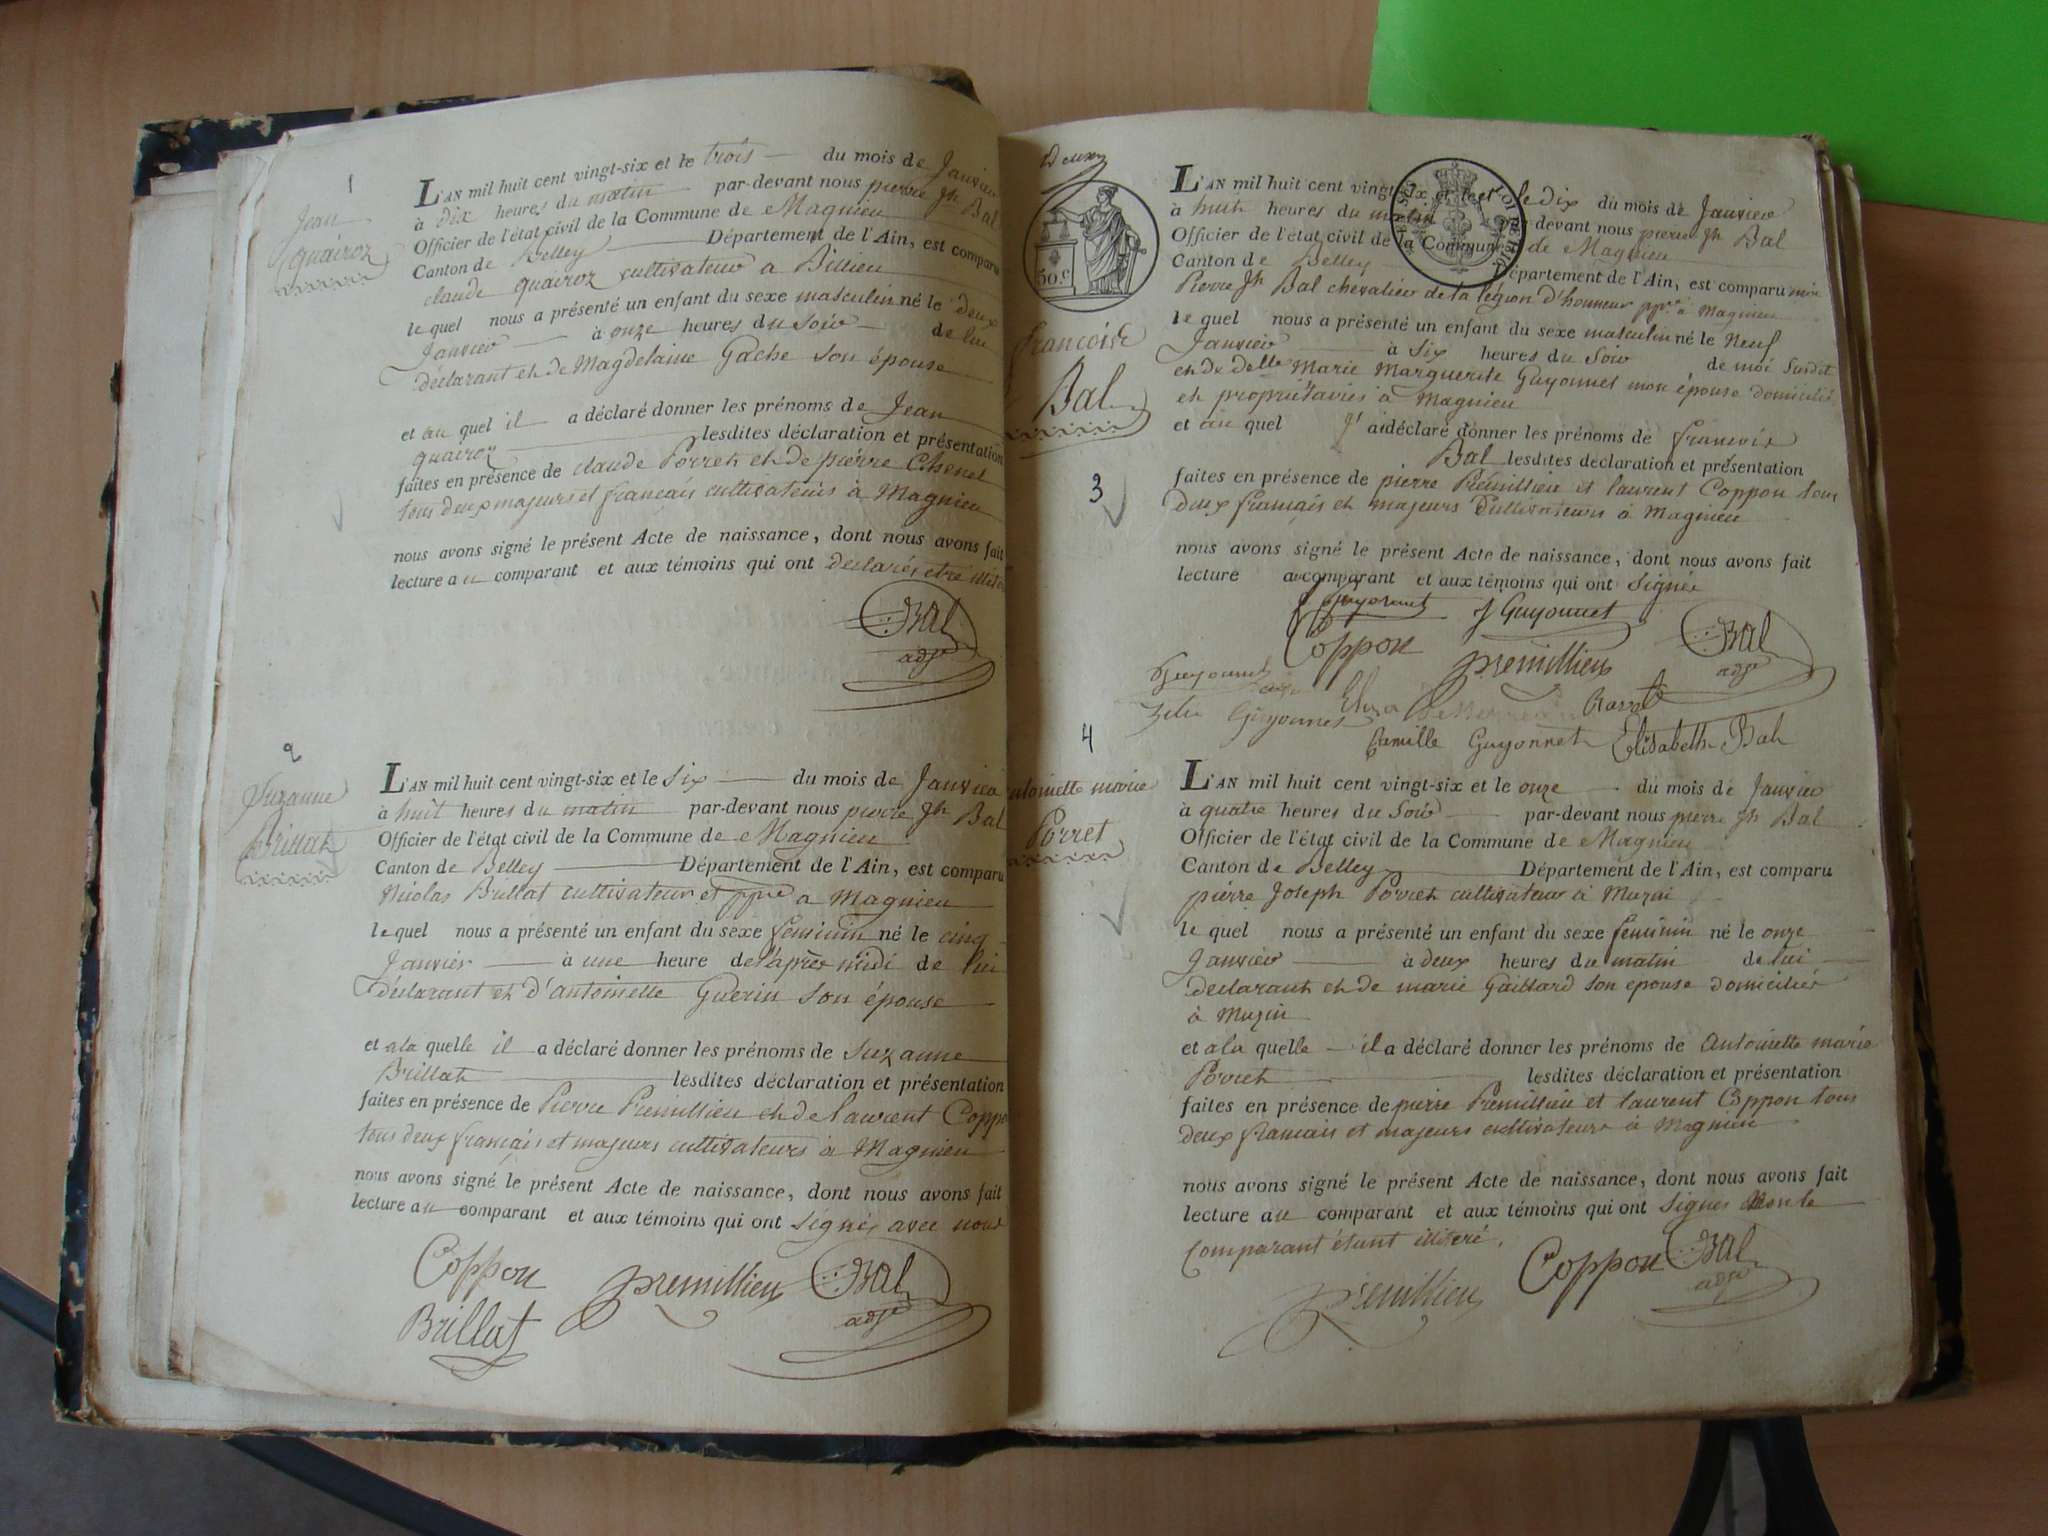 1
Jean
quairoz
L'AN mil huit cent vingt-six et le trois du mois de Janvier
à dix heures du matin par-devant nous pierre Jh Bal
Officier de l'état civil de la Commune de Magnieu
Canton de Belley Département de l'Ain, est comparu
claude quairoz cultivateur a Billieu
le quel nous a présenté un enfant du sexe masculin né le deux
Janvier à onze heures du soir de lui
déclarant et de Magdelaine Gache son épouse
et au quel il a déclaré donner les prénoms de Jean
quairoz lesdites déclaration et présentation
faites en présence de claude Porret et de pierre Chenet
tous deux majeurs et français cultivateurs à Magnieu
nous avons signé le présent Acte de naissance, dont nous avons fait
lecture au comparant et aux témoins qui ont déclarés etre
Bal
adjt
2
Suzanne
Brillat
L'AN mil huit cent vingt-six et le six du mois de Janvier
à huit heures du matin par-devant nous pierre Jh Bal
Officier de l'état civil de la Commune de Magnieu
Canton de Belley Département de l'Ain, est comparu
Nicolas Brillat cultivateur et ppre a Magnieu
le quel nous a présenté un enfant du sexe féminin né le cinq
Janvier à une heure de l'après midi de lui
déclarant et d'antoinette Guerin son épouse
et a la quelle il a déclaré donner les prénoms de suzanne
Brillat lesdites déclaration et présentation
faites en présence de Pierre Premillieu et de laurent Coppon
tous deux français et majeurs cultivateurs à Magnieu
nous avons signé le présent Acte de naissance, dont nous avons fait
lecture au comparant et aux témoins qui ont signés avec nous
Coppon
premillieu
Bal
adjt
Brillat
Deux
50 c
Francois
Bal
3
L'AN mil huit cent vingt-six et le dix du mois de Janvier
à huit heures du matin par-devant nous pierre Jh Bal
Officier de l'état civil de la Commune de Magnieu
Canton de Belley Département de l'Ain, est comparu moi
Pierre Jh Bal chevalier de la légion d'honneur ppre à Magnieu
le quel nous a présenté un enfant du sexe masculin né le neuf
Janvier à six heures du soir de moi susdit
et de delle Marie Marguerite Guyonnet mon épouse domiciliés
et propriétaires à Magnieu
et au quel j'ai déclaré donner les prénoms de francois
Bal lesdites déclaration et présentation
faites en présence de pierre Prémillieu et laurent Coppon tous
deux français et majeurs Cultivateurs à Magnieu
nous avons signé le présent Acte de naissance, dont nous avons fait
lecture au comparant et aux témoins qui ont signés
Guyonnet
J Guyonnet
Coppon
premillieu
Bal
adjt
Guyonnet
Zelie Guyonnet
Eliza
Camille Guyonnet
Elisabeth Bal
4
antoinette marie
Porret
L'AN mil huit cent vingt-six et le onze du mois de Janvier
à quatre heures du soir par-devant nous pierre Jh Bal
Officier de l'état civil de la Commune de Magnieu
Canton de Belley Département de l'Ain, est comparu
pierre Joseph Porret cultivateur à Muzin
le quel nous a présenté un enfant du sexe féminin né le onze
Janvier à deux heures du matin de lui
déclarant et de marie Gaillard son epouse domiciliés
à Muzin
et a la quelle il a déclaré donner les prénoms de antoinette marie
Porret lesdites déclaration et présentation
faites en présence de pierre Premillieu et laurent Coppon tous
deux français et majeurs cultivateurs à Magnieu
nous avons signé le présent Acte de naissance, dont nous avons fait
lecture au comparant et aux témoins qui ont signés non le
comparant étant illitéré.
Premillieu
Coppon
Bal
adjt